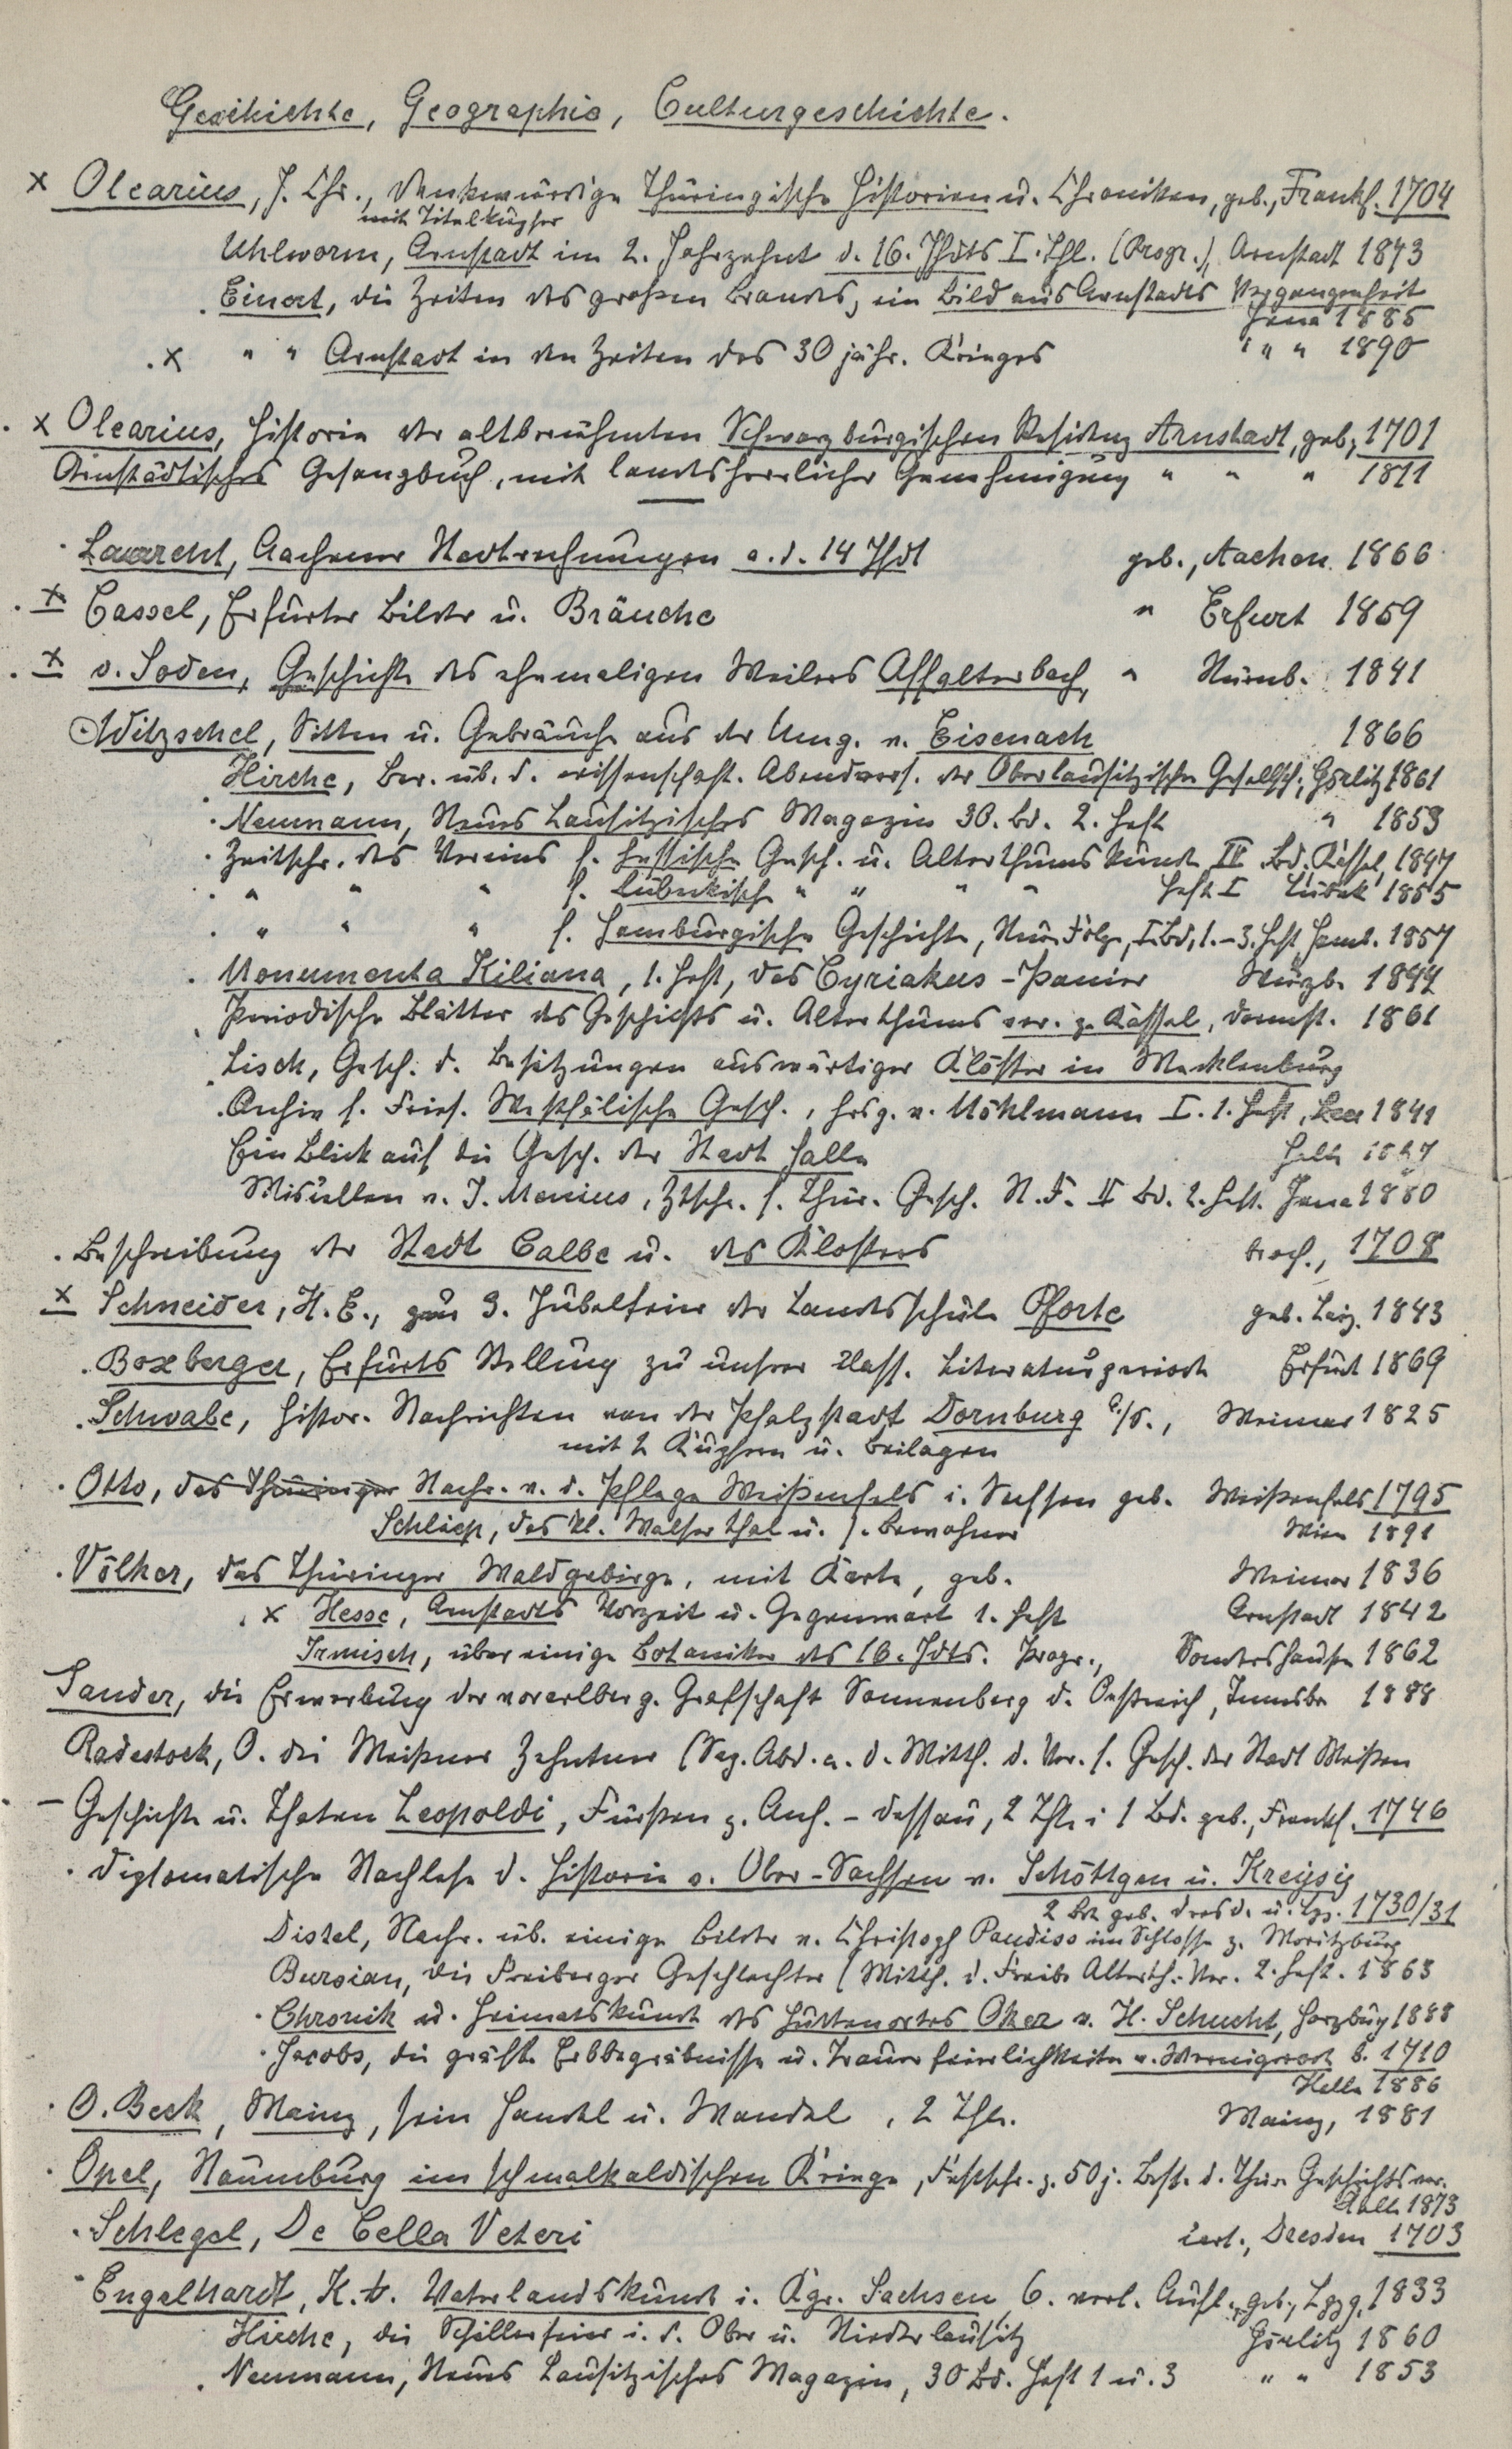 Geschichte, Geographie, Culturgeschichte.
x Olearius, J. Chr., Denkwürdige Thüringische Historien u. Chroniken, geb., Frankf. 1704
mit Titelkupfer
Uhlworm, Arnstadt im 2. Jahrzehnt d. 16. Jhdts I. Thl. (Progr.), Arnstadt 1873
Einert, die Zeiten des großen Brandes, ein Bild aus Arnstadts Vergangenheit
Jena 1885
x " " Arnstadt in den Zeiten des 30 jähr. Krieges " " 1890
x Olearius, Historie der altberühmten Schwarzburgischen Residenz Arnstadt, geb., 1701
Arnstädtisches Gesangbuch, mit landesherrlicher Genehmigung " " " 1811
Laurent, Aachener Stadtrechnungen a. d. 14 Jhdt geb., Aachen 1866
x Cassel, Erfurter Bilder u. Bräuche " Erfurt 1859
x v. Soden, Geschichte des ehemaligen Weilers Affalterbach, " Nürnb. 1841
Witzschel, Sitten u. Gebräuche aus der Umg. v. Eisenach 1866
Hirche, Ber. üb. d. wissenschaft. Abendvers. der Oberlausitzischen Gesellsch., Görlitz 1861
Neumann, Neues Lausitzisches Magazin 30. Bd. 2. Heft " 1853
Zeitschr. des Vereins f. hessische Gesch. u. Alterthumskunde IV Bd. Kassel, 1847
" " " f. Lübeckische " " " " Heft I Lübeck 1855
" " " f. Hamburgische Geschichte, Neue Folge, I. Bd, 1.-3. Heft Hamb. 1857
Monumenta Kiliana, 1. Heft, das Cyriakus-Panier Würzb. 1844
Periodische Blätter des Geschichts u. Alterthums ver. z. Kassel, Darmst. 1861
Lisch, Gesch. d. Besitzungen auswärtiger Klöster in Mecklenburg
Archiv f. Fries. Westfälische Gesch., hrsg. v. Möhlmann I. 1. Heft, Leer 1841
Ein Blick auf die Gesch. der Stadt Halle Halle
Miscellen v. J. Menius, Ztschr. f. Thür. Gesch. N. F. II Bd. 2. Heft. Jena 1880
Beschreibung der Stadt Calbe u. des Klosters broch., 1708
x Schneider, H. E., zur 3. Jubelfeier der Landesschule Pforte geb. Leipz. 1843
Boxberger, Erfurts Stellung zu unsrer klass. Literaturperiode Erfurt 1869
Schwabe, histor. Nachrichten von der Pfalzstadt Dornburg a./S., Weimar 1825
mit 2 Kupfern u. Beilagen
Otto, das Thüringer Nachr. v. d. Pflege Weißenfels i. Sachsen geb. Weißenfels 1795
Schliep, das kl. Walser Thal u. s. Bewohner Wien 1891
Völker, das Thüringer Waldgebirge, mit Karte, geb. Weimar 1836
x Hesse, Arnstadts Vorzeit u. Gegenwart 1. Heft Arnstadt 1842
Irmisch, über einige Botaniker des 16. Jdts. Progr., Sondershausen 1862
Sander, die Erwerbung der vorarlberg. Grafschaft Sonnenberg d. Oestreich, Innsbr 1888
Radestock, O. die Meißner Zehntner (Sep. Abd. a. d. Mitth. d. Ver. f. Gesch. der Stadt Meißen
– Geschichte u. Thaten Leopoldi, Fürsten z. Anh.-Dessau, 2 Thle i 1 Bd. geb., Frankf. 1746
Diplomatische Nachlese d. Historie v. Ober-Sachsen v. Schöttgen u. Kreysig
2 Bde geb. Dresd. u. Lpz. 1730/31
Distel, Nachr. üb. einige Bilder v. Christoph Paudiss im Schlosse z. Moritzburg
Bursian, die Freiberger Geschlechter (Mitth. d. Freib. Alterth.-Ver. 2. Heft. 1863
Chronik u. Heimatskunde des Hüttenortes Oker v. H. Schucht, Harzburg 1888
Jacobs, die gräfl. Erbbegräbnisse u. Trauerfeierlichkeiten v. Wernigerode b. 1710
Halle 1886
O. Beck, Mainz, sein Handel u. Wandel, 2 Thle. Mainz, 1881
Opel, Naumburg im schmalkaldischen Kriege, Festschr. z. 50 j. Best. d. Thür. Geschichtsver.
Halle 1873
Schlegel, De Cella Veteri cart., Dresden 1703
Engelhardt, K. A. Vaterlandskunde i. Kgr. Sachsen 6. verb. Aufl., geb., Lpzg. 1833
Hirche, die Schillerfeier i. d. Ober u. Niederlausitz Görlitz 1860
Neumann, Neues Lausitzisches Magazin, 30 Bd. Heft 1 u. 3 " " 1853